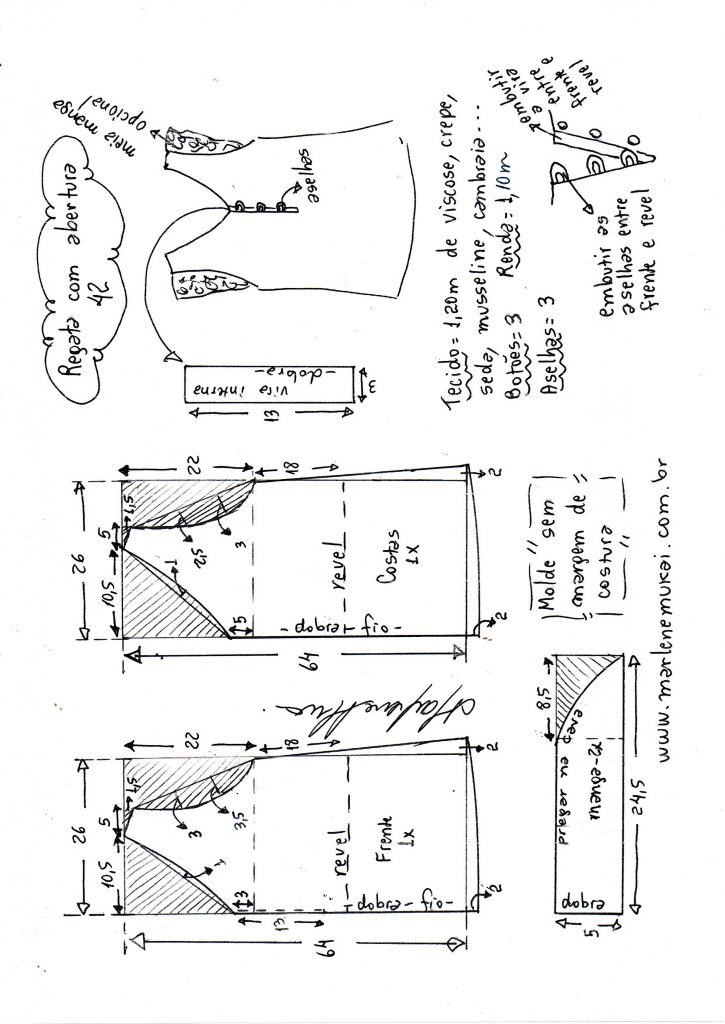 Regata com abertura
42
meia manga
opcional
aselhas
vira interna
-dobra-
13
3
Tecido = 1,20m de viscose, crepe,
seda, musseline, cambraia...
Botões = 3 Renda = 1,10m
Aselhas = 3
embutir
a vira
entre
frente e
revel
embutir as
aselhas entre
frente e revel
26
10,5
5
1,5
22
18
1
2,5
3
5
64
revel
Costas
1x
-dobra-fio-
2
2
26
10,5
5
1,5
22
18
1
3
3,5
3
13
64
revel
Frente
1x
-dobra-fio-
2
2
Molde sem
margem de
costura
8,5
pregar na cava
manga-2x
dobra
5
24,5
www.marlenemukai.com.br